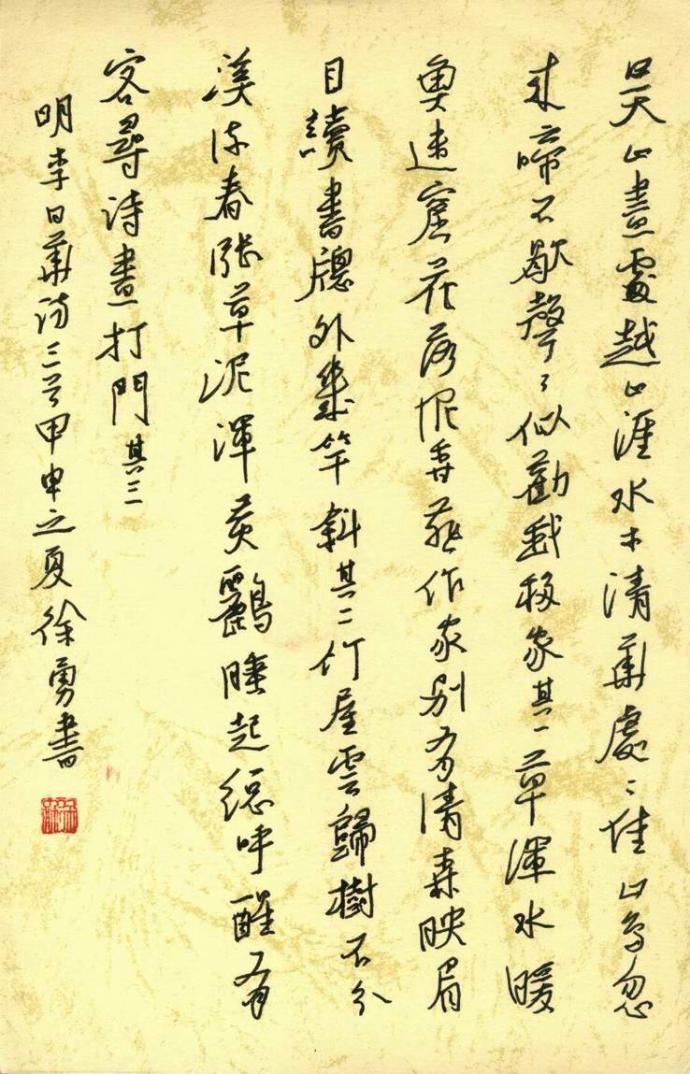 吴山盡處越山涯水木清華處〻佳山鳥忽
來啼不歇聲〻似勸我移家其一草渾水暖
魚迷窟花落泥香燕作家別有清森映眉
目讀書牕外幾竿斜其二竹屋雲歸樹不分
溪流春漲草泥渾黃鸝睡起總呼醒有
客尋詩畫打門其三
明李日華詩三首甲申之夏徐勇書